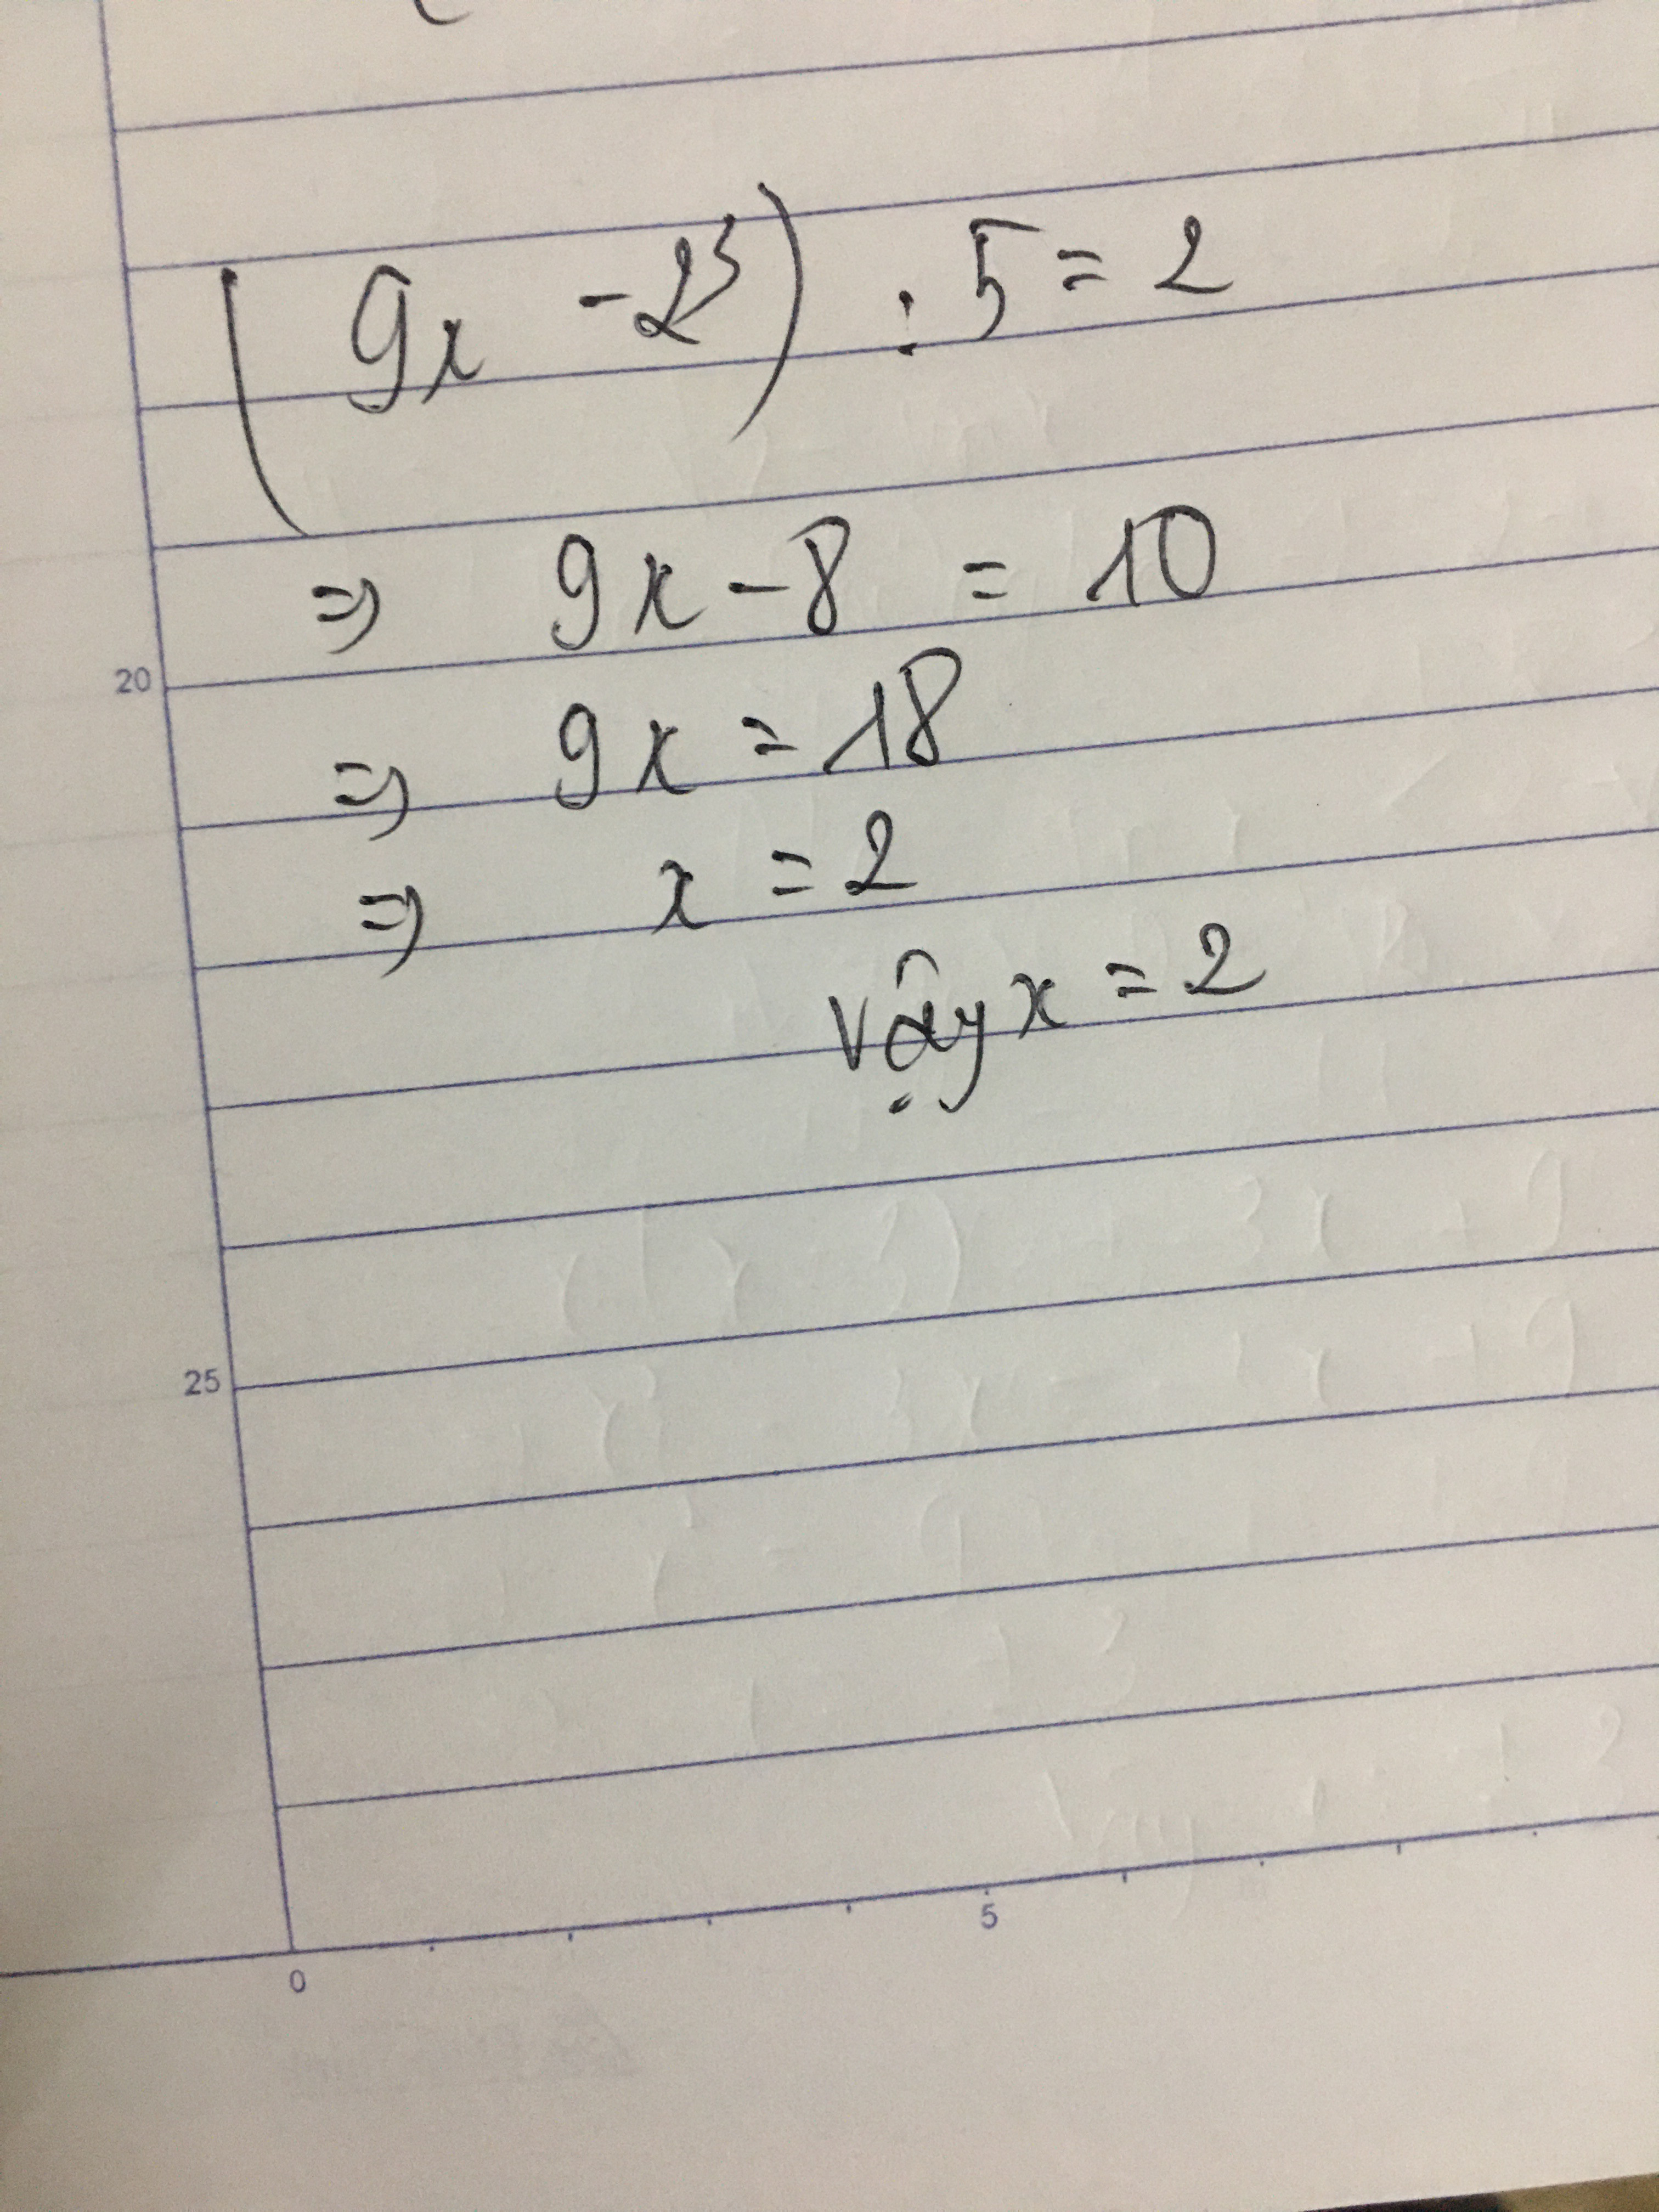 (9x - 2³) : 5 = 2
=> 9x - 8 = 10
20
=> 9x = 18
=> x = 2
Vậy x = 2
25
5
0